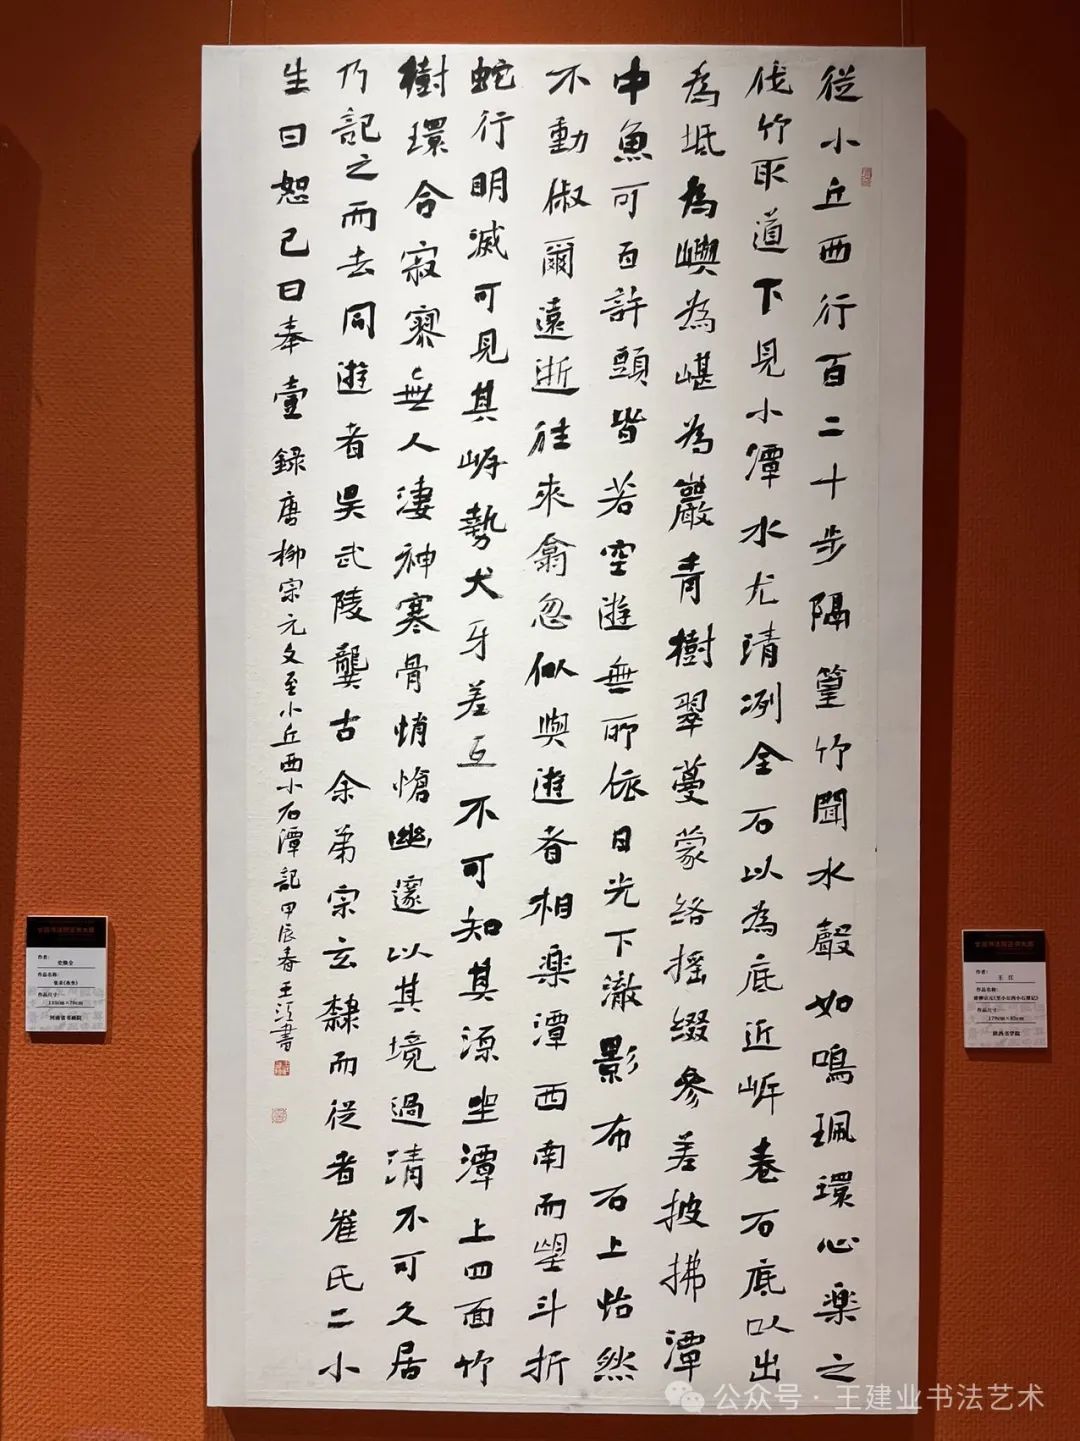 從小丘西行百二十步隔篁竹聞水聲如鳴珮環心樂之
伐竹取道下見小潭水尤清冽全石以為底近岸卷石底以出
為坻為嶼為嵁為巖青樹翠蔓蒙絡搖綴參差披拂潭
中魚可百許頭皆若空遊無所依日光下澈影布石上怡然
不動俶爾遠逝往來翕忽似與遊者相樂潭西南而望斗折
蛇行明滅可見其岸勢犬牙差互不可知其源坐潭上四面竹
樹環合寂寥無人淒神寒骨悄愴幽邃以其境過清不可久居
乃記之而去同遊者吳武陵龔古余弟宗玄隸而從者崔氏二小
生曰恕己曰奉壹 錄唐柳宗元文至小丘西小石潭記甲辰春王江書
作者:
王 江
作品名称:
作品尺寸:
179cm×85cm
陕西书学院
作者:
作品名称:
作品尺寸:
河南省书画院
公众号·王建业书法艺术